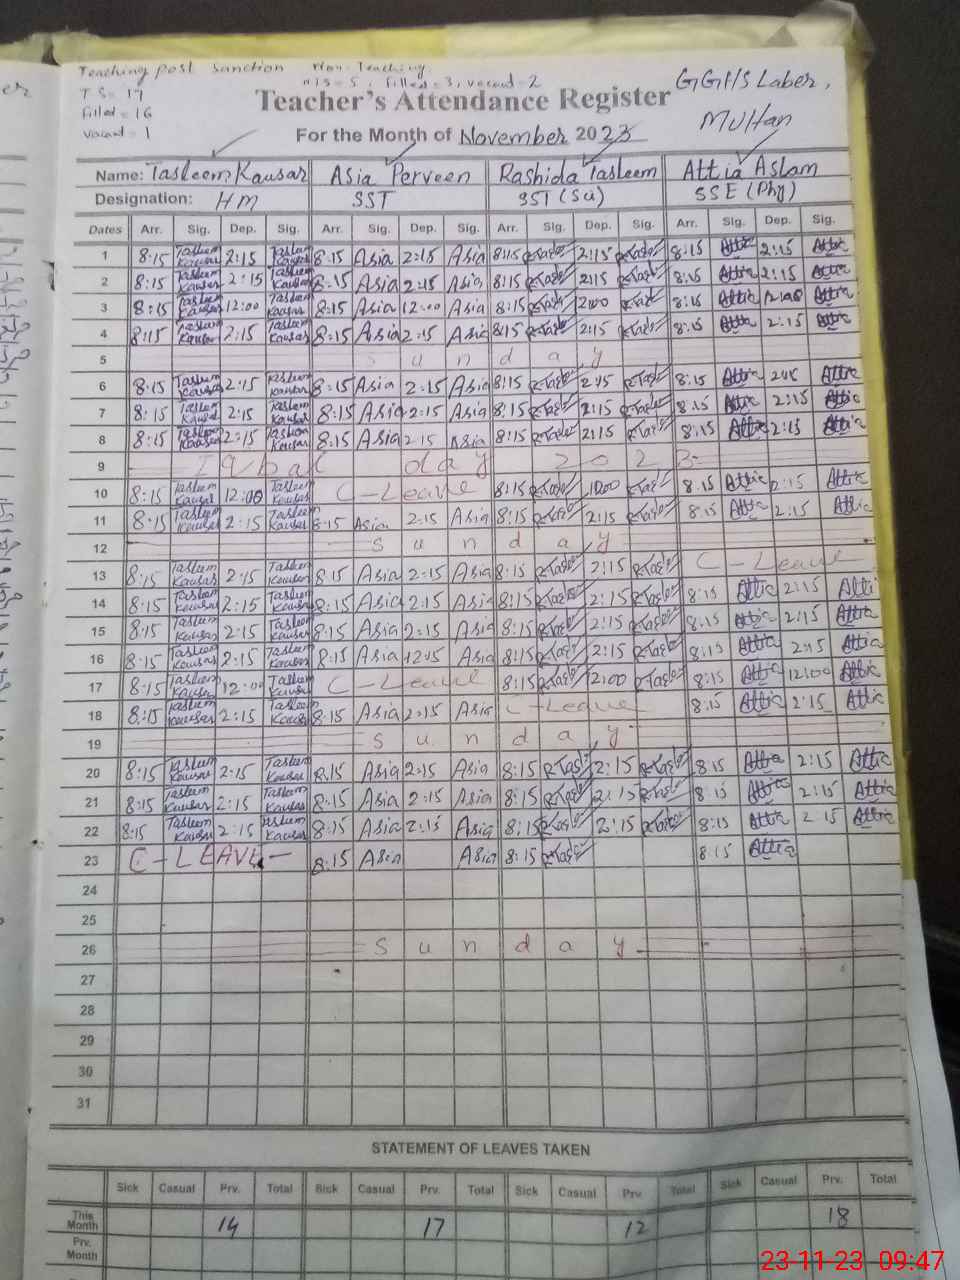 Teaching post Sanction Non-Teaching.
T S = 17 NTS = 5, Filled = 3, Vacant = 2
Filled = 16
Vacant = 1
GGHS Laber,
Multan
Teacher's Attendance Register
For the Month of November 2023
Name: Tasleem Kausar Asia Perveen Rashida Tasleem Attia Aslam
Designation: HM SST SST (Sci) SSE (Phy)
Dates Arr. Sig. Dep. Sig. Arr. Sig. Dep. Sig. Arr. Sig. Dep. Sig. Arr. Sig. Dep. Sig.
1 8:15 Tasleem Kausar 2:15 Tasleem Kausar 8:15 Asia 2:15 Asia 8:15 2:15 8:15 Attia 2:15 Attia
2 8:15 Tasleem Kausar 2:15 Tasleem Kausar 8:15 Asia 2:15 Asia 8:15 2:15 8:15 Attia 2:15 Attia
3 8:15 Tasleem Kausar 12:00 Tasleem Kausar 8:15 Asia 12:00 Asia 8:15 8:15 Attia Attia
4 8:15 Tasleem Kausar 2:15 Tasleem Kausar 8:15 Asia 2:15 Asia 8:15 2:15 8:15 Attia 2:15 Attia
5 Sunday
6 8:15 Tasleem Kausar 2:15 Tasleem Kausar 8:15 Asia 2:15 Asia 8:15 2:15 8:15 Attia 2:15 Attia
7 8:15 Tasleem Kausar 2:15 Tasleem Kausar 8:15 Asia 2:15 Asia 8:15 2:15 8:15 Attia 2:15 Attia
8 8:15 Tasleem Kausar 2:15 Tasleem Kausar 8:15 Asia 2:15 Asia 8:15 2:15 8:15 Attia 2:15 Attia
9 Iqbal day 2023
10 8:15 Tasleem Kausar 12:00 Tasleem Kausar C-Leave 8:15 8:15 Attia 2:15 Attia
11 8:15 Tasleem Kausar 2:15 Tasleem Kausar 8:15 Asia 2:15 Asia 8:15 2:15 8:15 Attia 2:15 Attia
12 Sunday
13 8:15 Tasleem Kausar 2:15 Tasleem Kausar 8:15 Asia 2:15 Asia 8:15 2:15 C-Leave
14 8:15 Tasleem Kausar 2:15 Tasleem Kausar 8:15 Asia 2:15 Asia 8:15 2:15 8:15 Attia 2:15 Atti
15 8:15 Tasleem Kausar 2:15 Tasleem Kausar 8:15 Asia 2:15 Asia 8:15 2:15 8:15 Attia 2:15 Attia
16 8:15 Tasleem Kausar 2:15 Tasleem Kausar 8:15 Asia Asia 8:15 2:15 8:15 Attia 2:15 Attia
17 8:15 Tasleem Kausar 12:00 Tasleem Kausar C-Leave 8:15 2:00 8:15 Attia 12:00 Attia
18 8:15 Tasleem Kausar 2:15 Tasleem Kausar 8:15 Asia 2:15 Asia C-Leave 8:15 Attia 2:15 Attia
19 Sunday
20 8:15 Tasleem Kausar 2:15 Tasleem Kausar 8:15 Asia 2:15 Asia 8:15 2:15 8:15 Attia 2:15 Attia
21 8:15 Tasleem Kausar 2:15 Tasleem Kausar 8:15 Asia 2:15 Asia 8:15 2:15 8:15 Attia 2:15 Attia
22 8:15 Tasleem Kausar 2:15 Tasleem Kausar 8:15 Asia 2:15 Asia 8:15 2:15 8:15 Attia 2:15 Attia
23 C-LEAVE- 8:15 Asia Asia 8:15 8:15 Attia
24
25
26 Sunday
27
28
29
30
31
STATEMENT OF LEAVES TAKEN
Sick Casual Prv. Total Sick Casual Prv. Total Sick Casual Prv. Total Sick Casual Prv. Total
This Month 14 17 12 18
Prv. Month
23-11-23 09:47